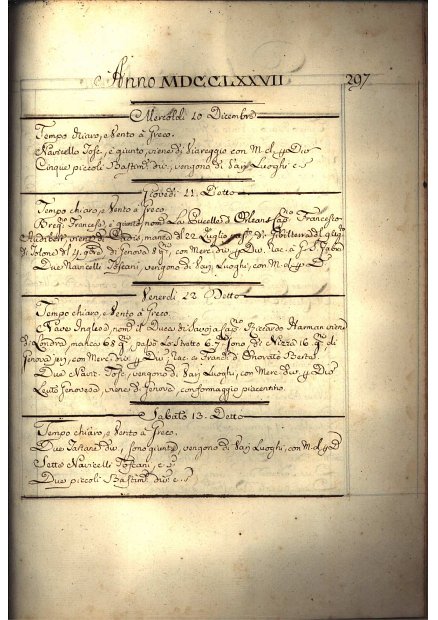 Anno MDCCLXXVII 297
Mercoldi 10 Dicembre
Tempo chiaro, e Vento à Greco.
Navicello Tosc. è giunto, viene di Viareggio con M. d. p Div
Cinque piccoli Bastim. div. vengono di Varj Luoghi e s
Giovedi 11 Detto
Tempo chiaro, e Vento à Greco
Brig. Francese è giunto nom. La Pucelle d'Orleans Cap. Francesco
viene di manca dal 22 Luglio
di Tolone di 4 di Genova con Merc. div. p Div. Rac. à
Due Navicelli Toscani, vengono di Varj Luoghi, con M. d. p D
Venerdi 12 Detto
Tempo chiaro, e Vento à Greco.
Nave Inglese nom. il Duca di Savoja Cap. Riccardo Harman viene
di Londra manca 68 g. passò lo Stretto 6. 7 di Nizza 16. g. di
Genova jeri, con Merc. div. p Div. Rac. à Franc. d'Onorato Berte.
Due Navic. Tosc. vengono di Varj Luoghi, con Merc. div. p Div
Leuto Genovese, viene di Genova, con formaggio piacentino.
Sabato 13. Detto
Tempo chiaro, e Vento à Greco.
Due Tartane div. sono giunte, vengono di Varj Luoghi, con M. d. p D
Sette Navicelli Toscani, e s
Due piccoli Bastim. div. e s